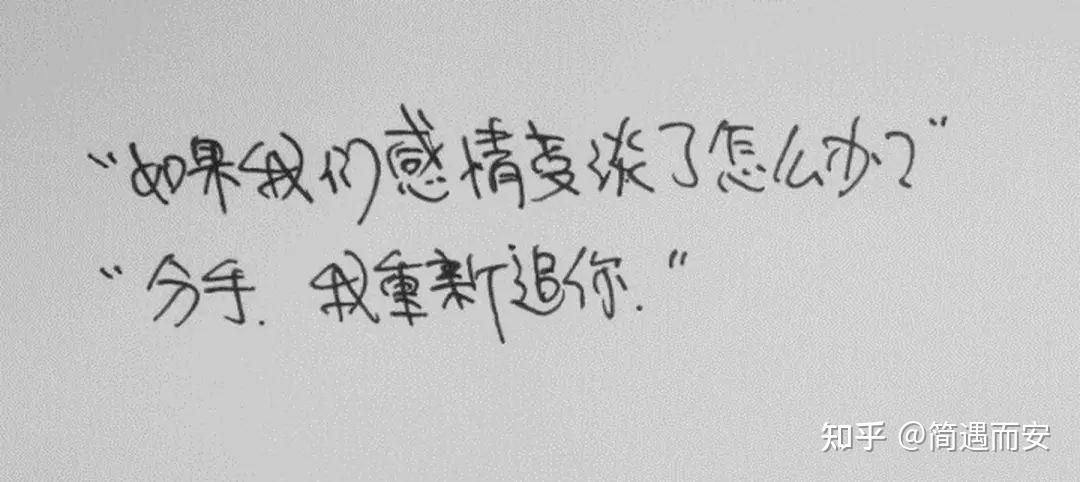 “如果我们感情变淡了怎么办？”
“分手.我重新追你.”
知乎 @简遇而安